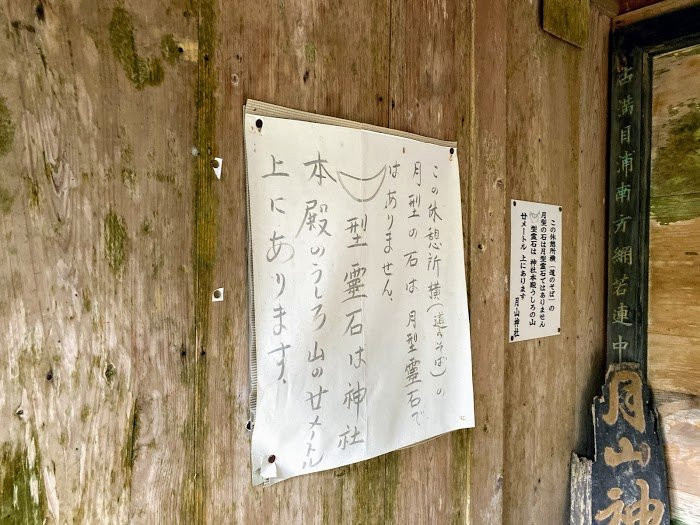 この休憩所横(道のそば)の
月型の石は月型霊石で
はありません。
型霊石は神社
本殿のうしろ山の廿メートル
上にあります、
この休憩所横(道のそば)の
月型の石は月型霊石ではありません
型霊石は 神社本殿うしろの山
廿メートル 上にあります
月山神社
古満目浦南方網若連中
月山神